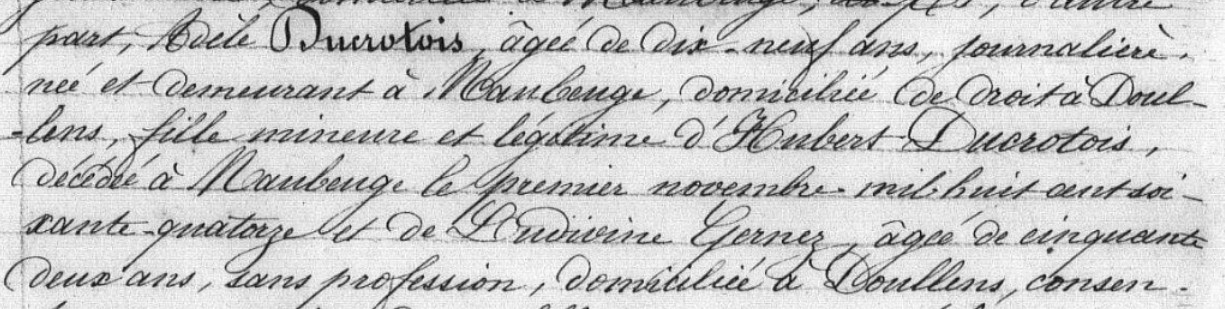 part, Adèle Ducrotois, âgée de dix-neuf ans, journalière,
née et demeurant à Maubeuge, domiciliée de droit à Doul-
-lens, fille mineure et légitime d'Hubert Ducrotois,
décédé à Maubeuge le premier novembre mil huit cent soi-
xante-quatorze et de Ludivine Gernez, âgée de cinquante
deux ans, sans profession, domiciliée à Doullens, consen-